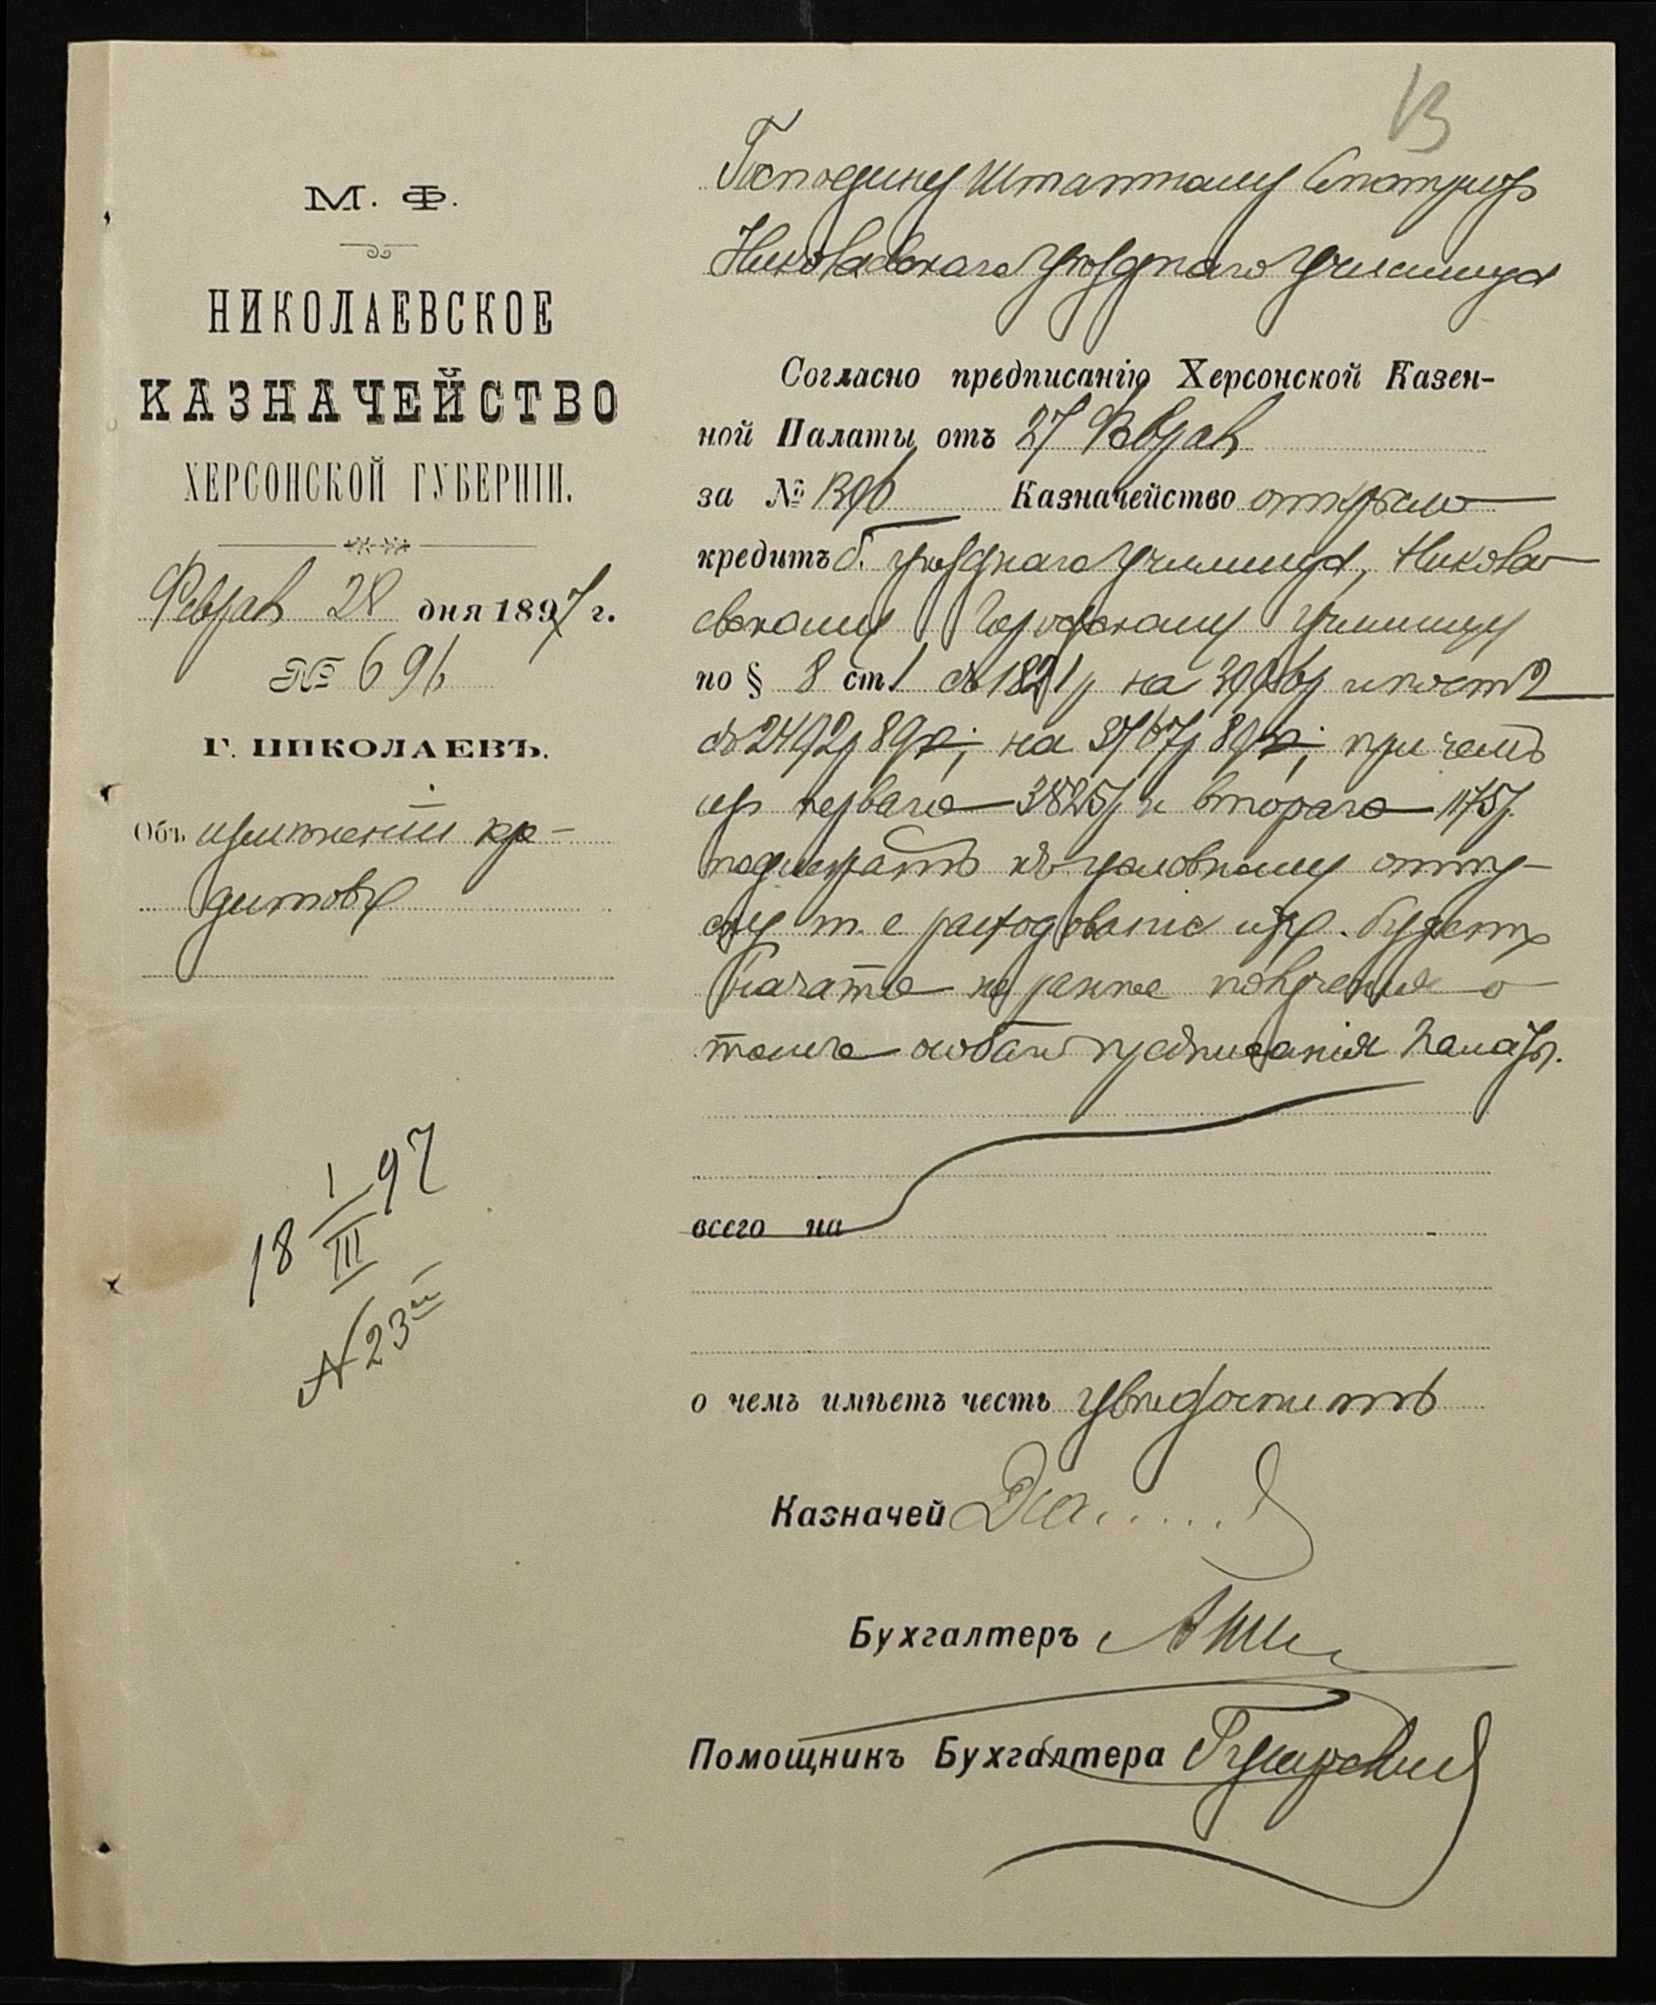 13
М. Ф.
НИКОЛАЕВСКОЕ
КАЗНАЧЕЙСТВО
ХЕРСОНСКОЙ ГУБЕРНІИ.
Феврал 28 дня 1897 г.
№ 696
Г. НИКОЛАЕВЪ.
Объ измѣненіи кре-
дитовъ
18 1/III 97
N 23
Господину Штатному Смотрителю
Николаевскаго Уѣзднаго Училища
Согласно предписанію Херсонской Казен-
ной Палаты отъ 27 Феврал
за № 1396 Казначейство открыло
кредитъ б. Уѣзднаго Училища, Никола
евскому Городскому Училищу
по § 8 ст 1 съ 1821 р на и по ст 2
съ 2492 р 89 к; на 3767 р 89 к; при чемъ
изъ перваго 3825 р и втораго 1175 р.
подлежатъ къ условному отпу-
ску т. е расходованіе ихъ будетъ
начато не ранѣе полученія о
томъ особаго предписанія Палаты.
всего на
о чемъ имѣетъ честь увѣдомить
Казначей
Бухгалтеръ
Помощникъ Бухгалтера